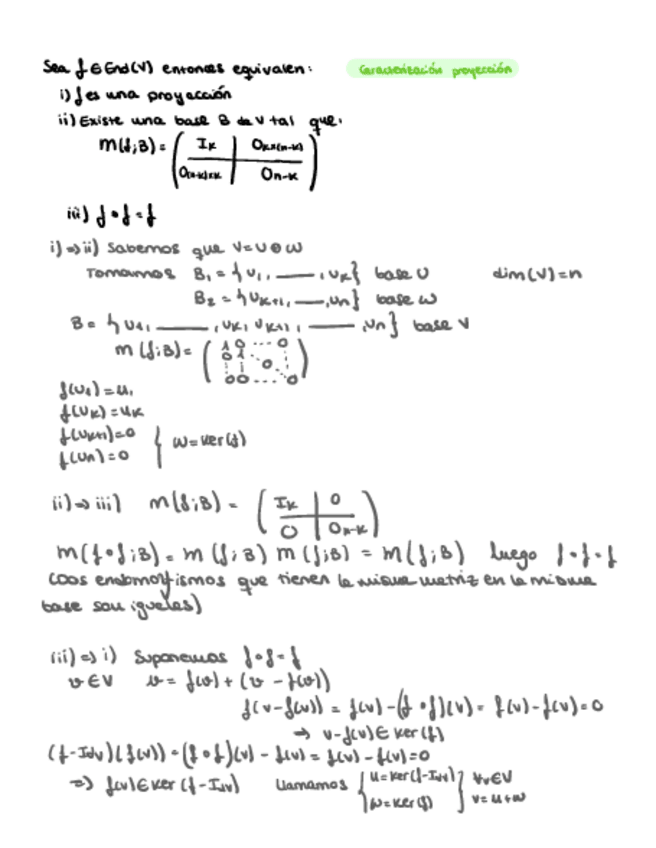 Sea f ∈ End(V) entonces equivalen: Caracterización proyección
i) f es una proyección
ii) Existe una base B de V tal que:
m(f;B) = ( I_K | O_Kx(n-K) )
( O_(n-K)xK | O_n-K )
iii) f ∘ f = f
i) ⇒ ii) Sabemos que V = U ⊕ W
Tomamos B₁ = {u₁, ——, u_K} base U dim(V) = n
B₂ = {u_K+1, ——, u_n} base W
B = {u₁, ——, u_K, u_K+1, ——, u_n} base V
m(f;B) = ( 1 0 ... 0
0 1 ⋮
⋮ ⋮ 0 ⋱ ⋮
0 0 ... 0 )
f(u₁) = u₁
f(u_K) = u_K
f(u_K+1) = 0
f(u_n) = 0 } W = Ker(f)
ii) ⇒ iii) m(f;B) = ( I_K | 0 )
( 0 | O_n-K )
m(f ∘ f;B) = m(f;B) m(f;B) = m(f;B) luego f ∘ f = f
(dos endomorfismos que tienen la misma matriz en la misma
base son iguales)
iii) ⇒ i) Suponemos f ∘ f = f
v ∈ V v = f(v) + (v - f(v))
f(v - f(v)) = f(v) - (f ∘ f)(v) = f(v) - f(v) = 0
⇒ v - f(v) ∈ Ker(f)
(f - Id_V)(f(v)) = (f ∘ f)(v) - f(v) = f(v) - f(v) = 0
⇒ f(v) ∈ Ker(f - Id_V) Llamamos { U = Ker(f - Id_V) } ∀v ∈ V
{ W = Ker(f) } v = u + w